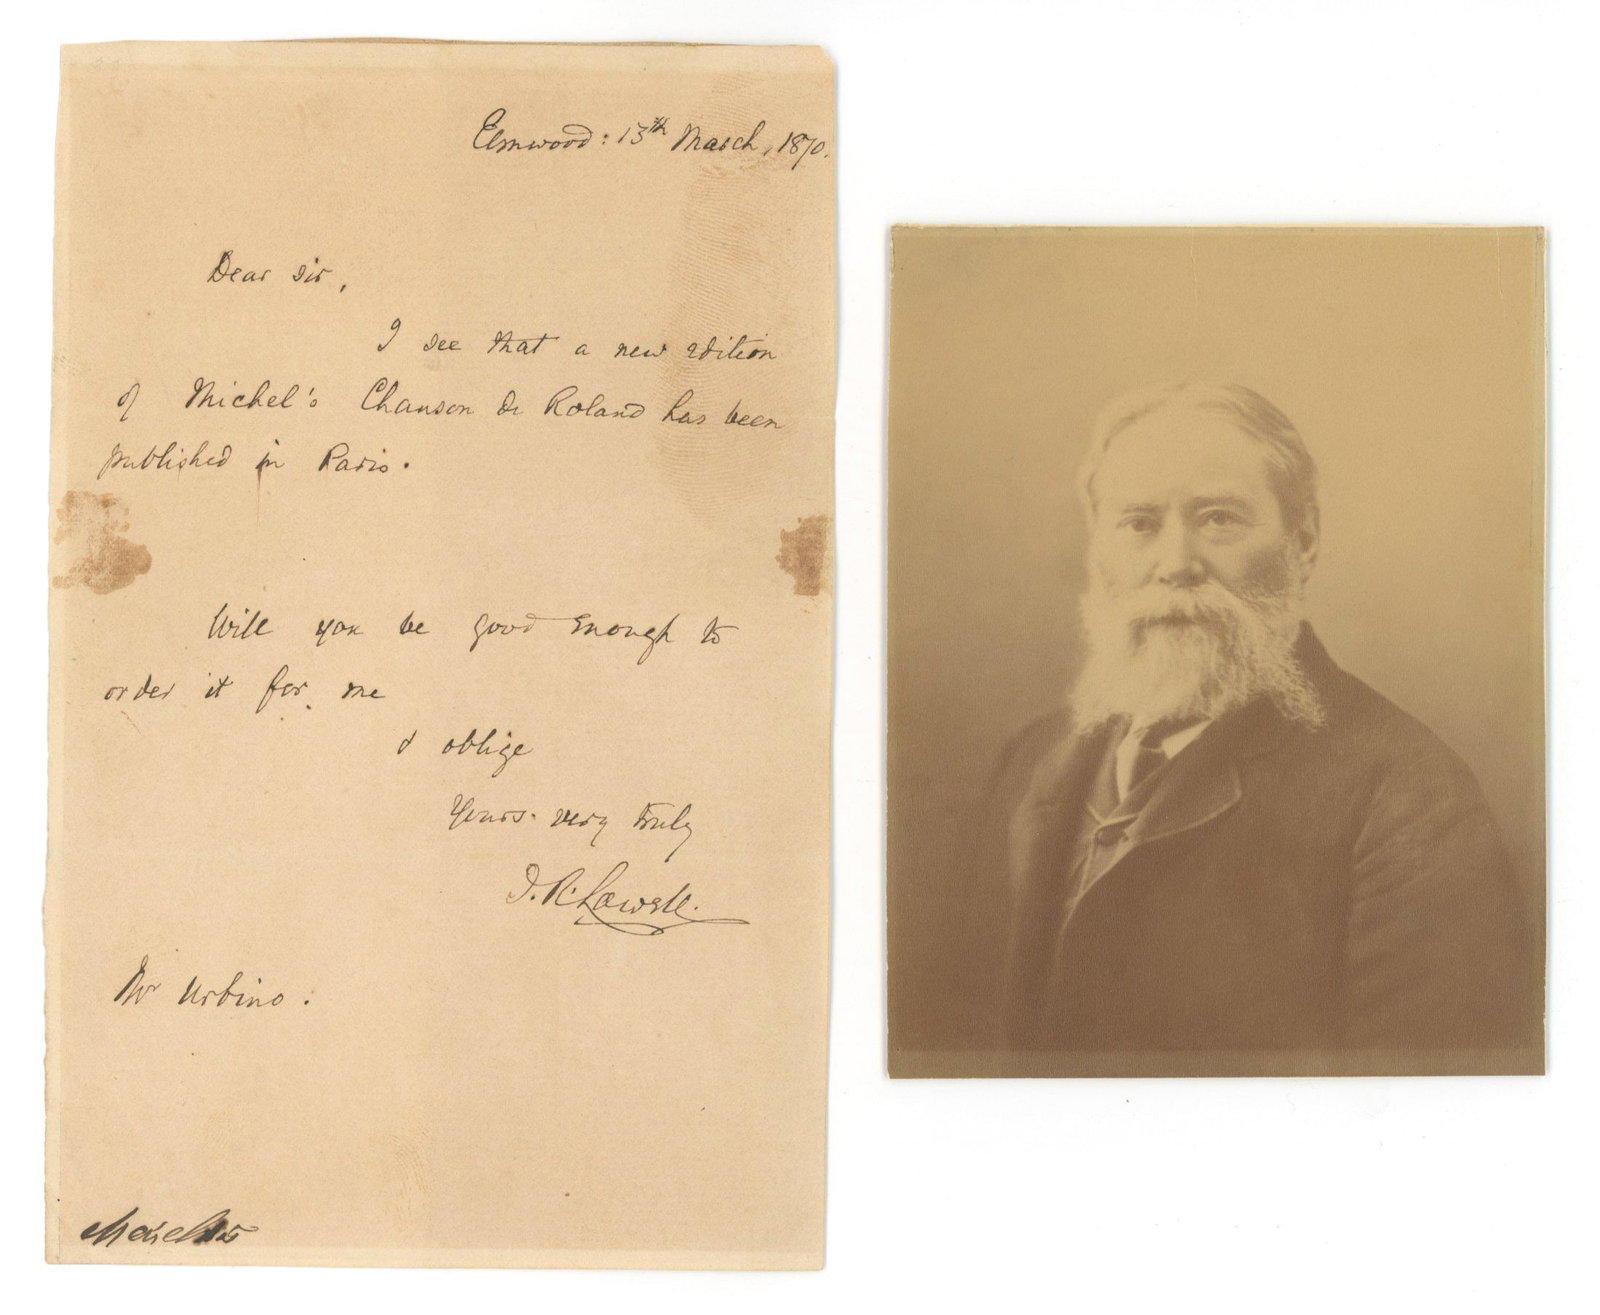 Elmwood: 13th March, 1870.
Dear Sir,
I see that a new edition
of Michel's Chanson de Roland has been
published in Paris.
Will you be good enough to
order it for me
& oblige
Yours very truly
J. R. Lowell.
Mr Urbino.